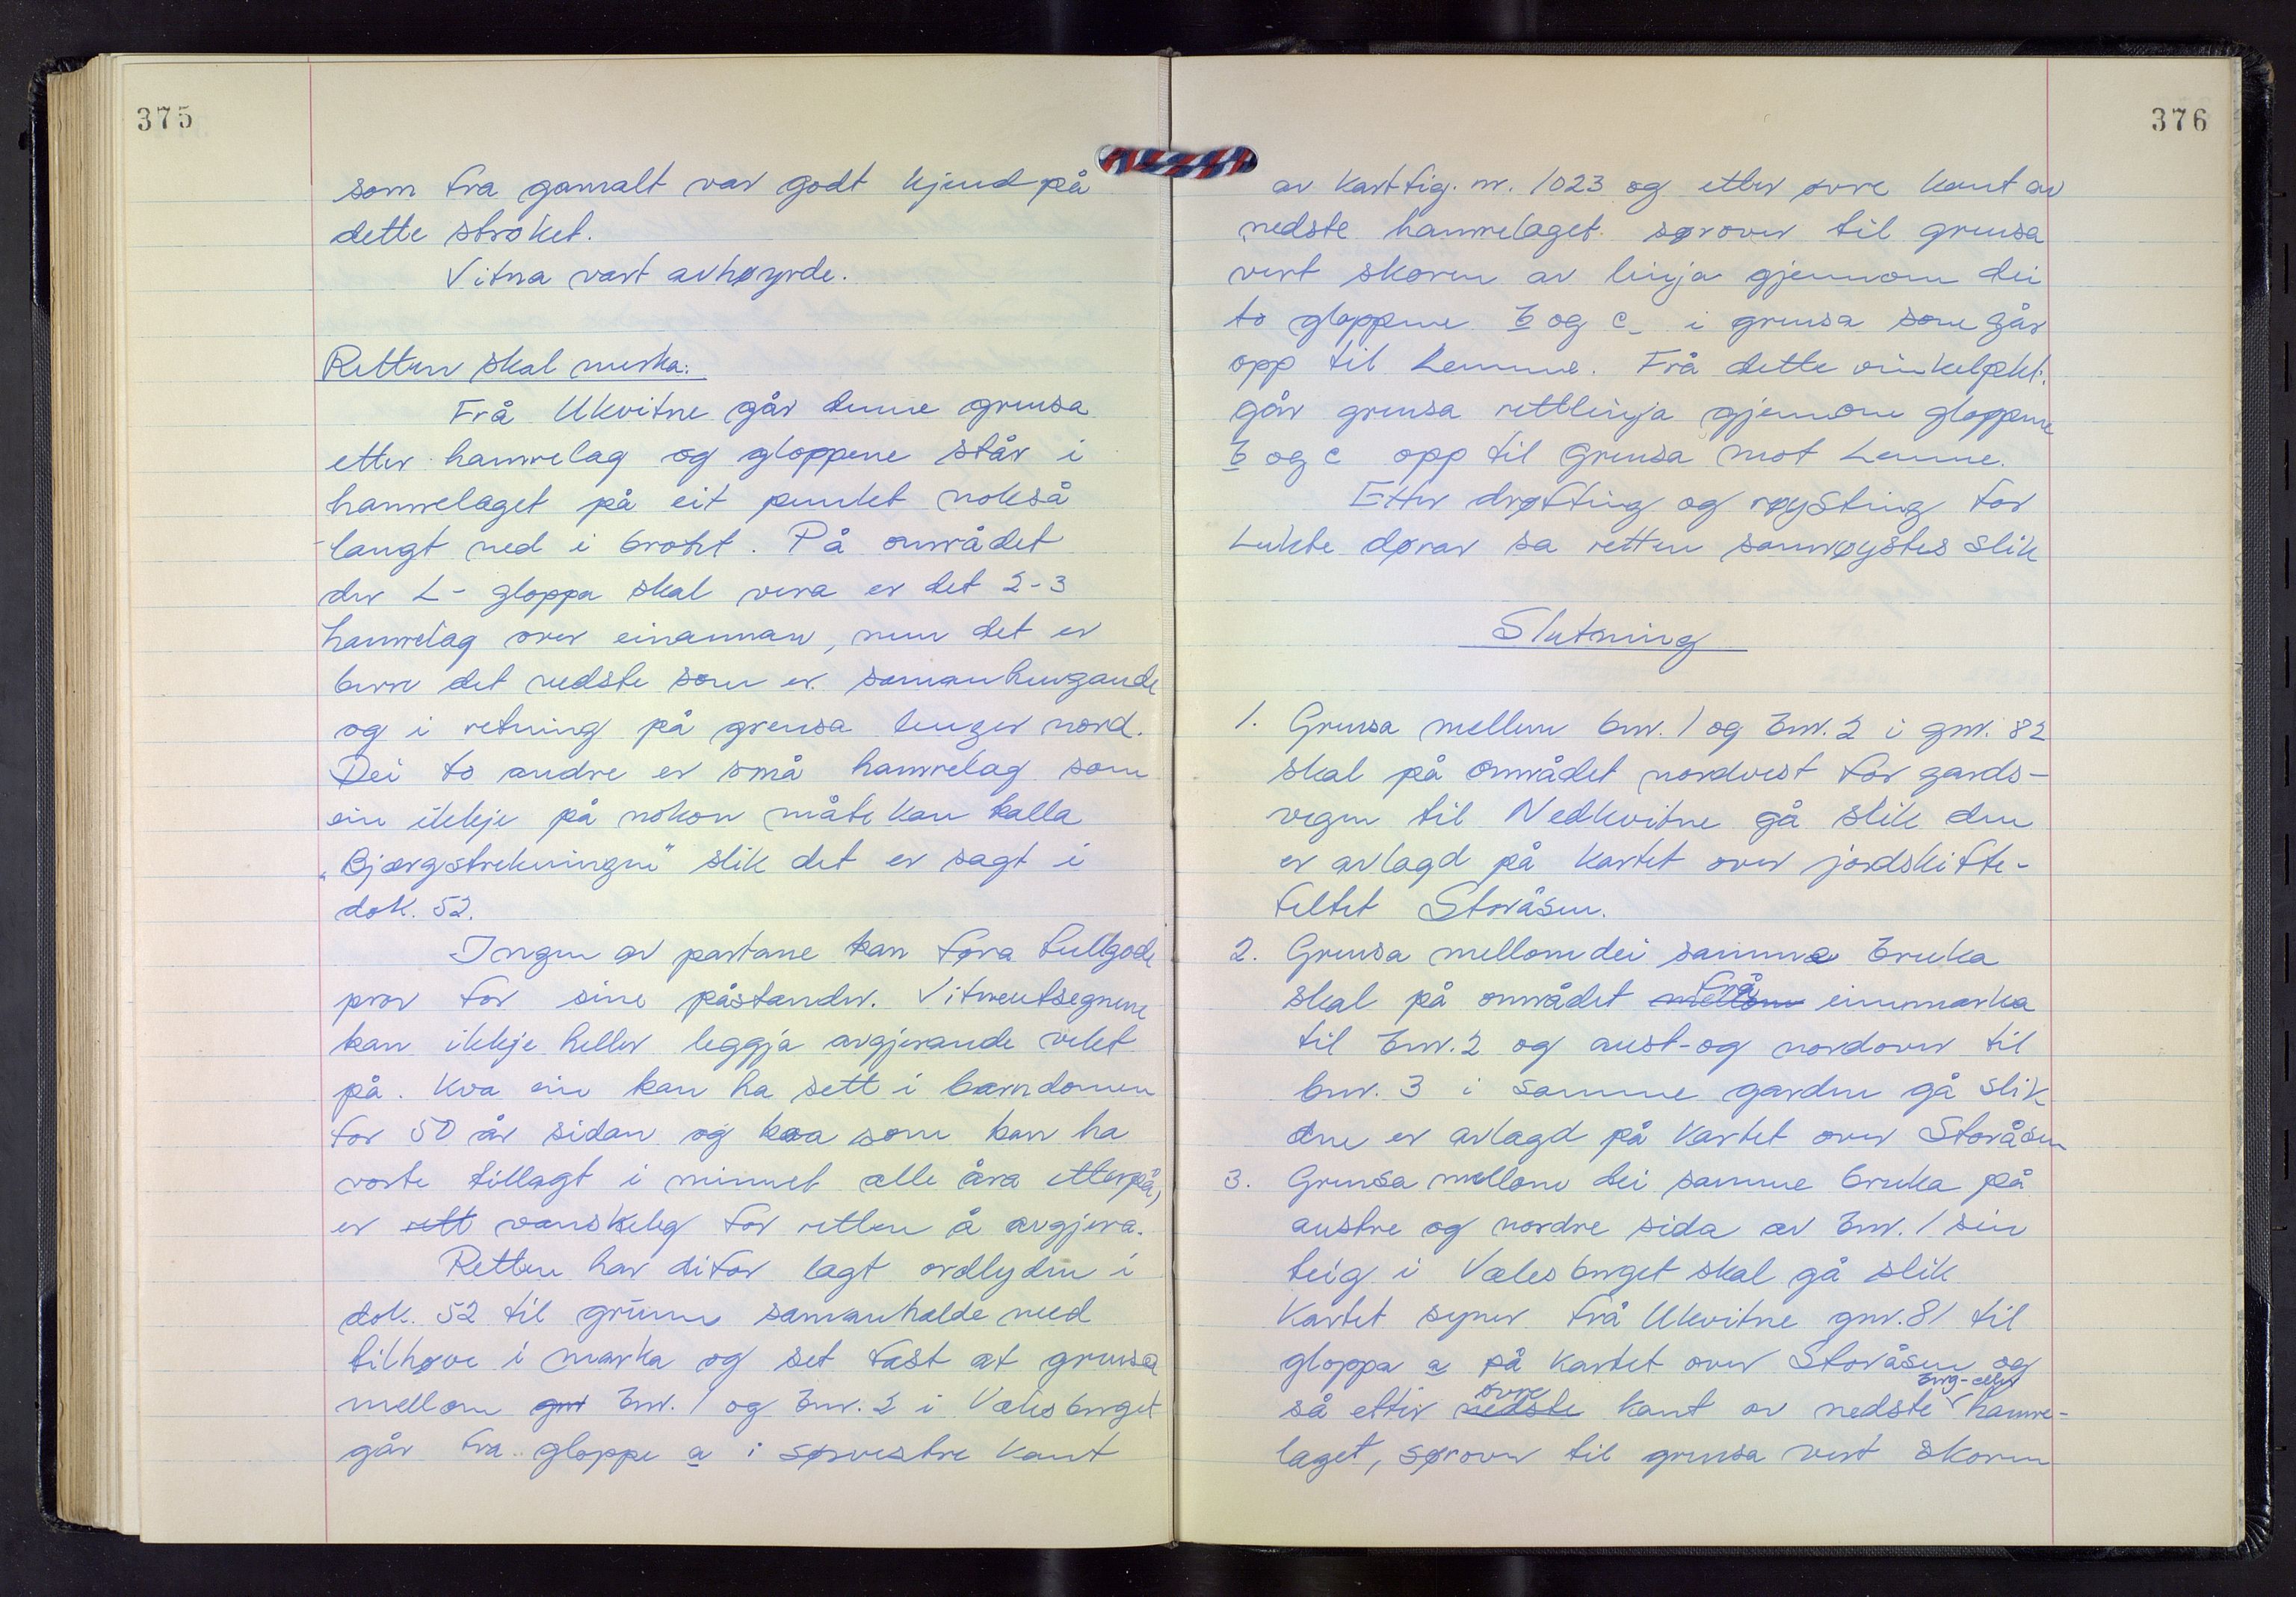 375
som fra gamalt var godt kjend på
dette strøket.
Vitna vart avhøyrde.
Retten skal merka:
Frå Ukvitne går denne grensa
etter hamrelag og gloppene står i
hamrelaget på eit punktet nokså
langt ned i brotet. På området
der L- gloppa skal vera er det 2-3
hamrelag over einannan, men det er
berre det nedste som er samanhengande
og i retning på grensa lenger nord.
Dei to andre er små hamrelag som
ein ikkje på nokon måte kan kalla
„Bjørgstrekningen" slik det er sagt i
dok. 52.
Ingen av partane kan føra fullgode
prov for sine påstander. Vitneutsegnene
kan ikkje heller leggja avgjerande vekt
på. Kva ein kan ha sett i barndomen
for 50 år sidan og kva som kan ha
vorte tillagt i minnet alle åra etterpå,
er rett vanskeleg for retten å avgjera.
Retten har difor lagt ordlyden i
dok. 52 til grunn samanhalde med
tilhøve i marka og set fast at grensa
mellom gnr bnr. 1 og bnr. 2 i Valesberget
går fra gloppe a i sørvestre kant
376
av kartfig. nr. 1023 og etter øvre kant av
nedste hamrelaget sørover til grensa
vert skoren av linja gjennom dei
to gloppene b og c i grensa som går
opp til Lemme. Frå dette vinkelpkt.
går grensa rettlinja gjennom gloppene
b og c opp til grensa mot Lemme.
Etter drøfting og røysting for
lukte dørar sa retten samrøystes slik
Slutning
1. Grensa mellom bnr. 1 og bnr. 2 i gnr. 82
skal på området nordvest for gards-
vegen til Nedkvitne gå slik den
er avlagd på kartet over jordskifte-
feltet Storåsen.
2. Grensa mellom dei samme bruka
skal på området mellom frå einnmarka
til bnr. 2 og aust- og nordover til
bnr. 3 i samme garden gå slik
den er avlagd på kartet over Storåsen
3. Grensa mellom dei samme bruka på
austre og nordre sida av bnr. 1 sin
teig i Valesberget skal gå slik
kartet syner frå Ukvitne gnr. 81 til
gloppa a på kartet over Storåsen og
så etter nedste øvre kant av nedste berg- eller hamre-
laget, sørover til grensa vert skoren